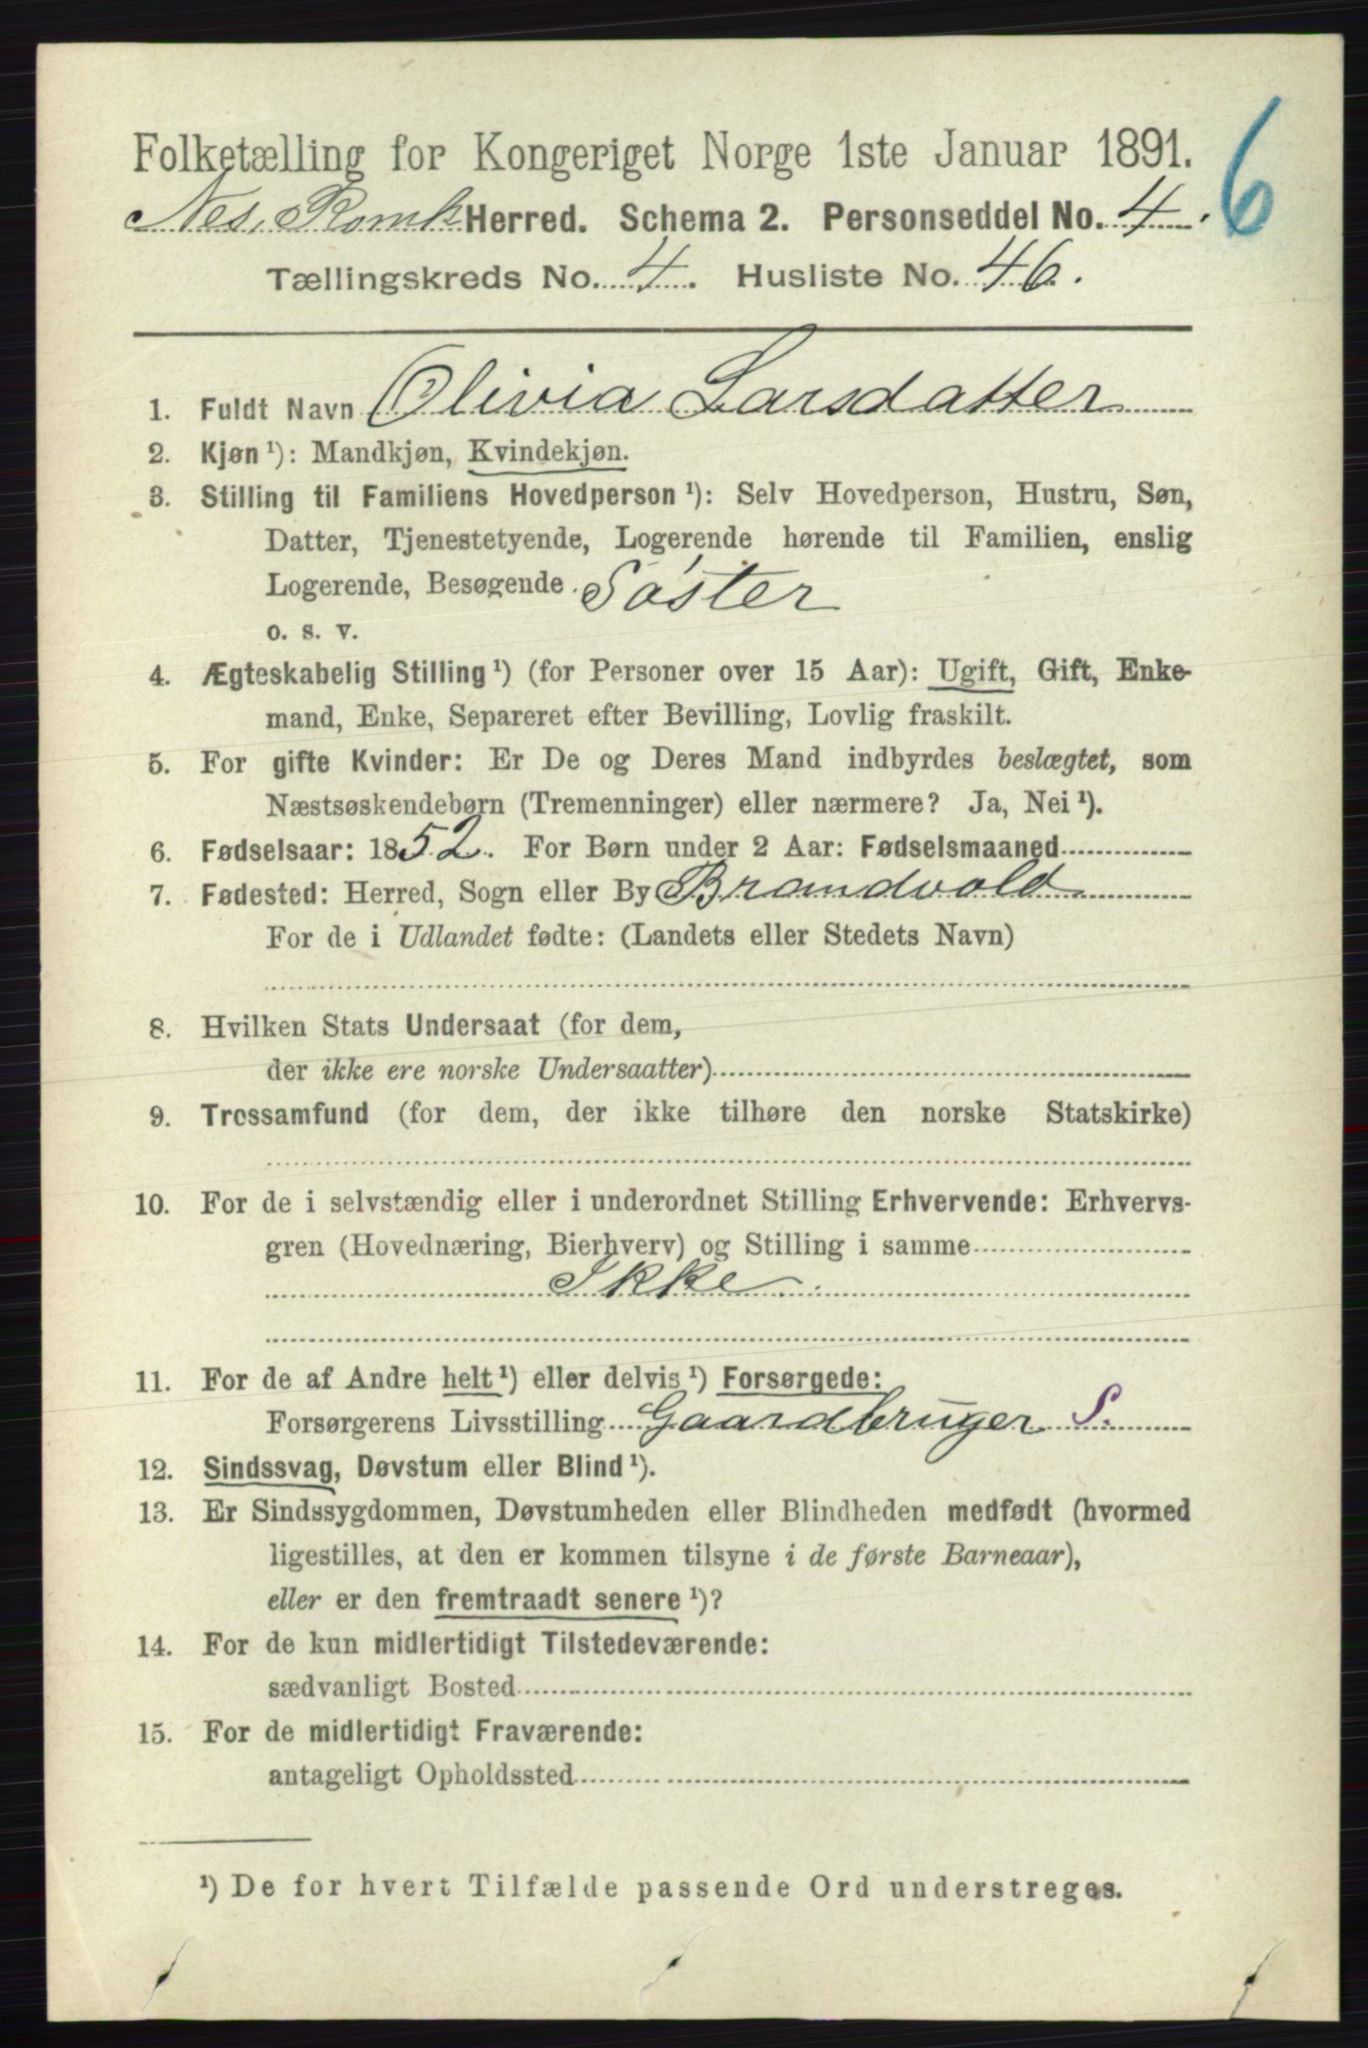 Folketælling for Kongeriget Norge 1ste Januar 1891.
6
Nes, Romk Herred. Schema 2. Personseddel No. 4.
Tællingskreds No. 4. Husliste No. 46.
1. Fuldt Navn Olivia Larsdatter
2. Kjøn ¹): Mandkjøn, Kvindekjøn.
3. Stilling til Familiens Hovedperson ¹): Selv Hovedperson, Hustru, Søn,
Datter, Tjenestetyende, Logerende hørende til Familien, enslig
Logerende, Besøgende Søster
o. s. v.
4. Ægteskabelig Stilling ¹) (for Personer over 15 Aar): Ugift, Gift, Enke-
mand, Enke, Separeret efter Bevilling, Lovlig fraskilt.
5. For gifte Kvinder: Er De og Deres Mand indbyrdes beslægtet, som
Næstsøskendebørn (Tremenninger) eller nærmere? Ja, Nei ¹).
6. Fødselsaar: 1852. For Børn under 2 Aar: Fødselsmaaned
7. Fødested: Herred, Sogn eller By Brandvold
For de i Udlandet fødte: (Landets eller Stedets Navn)
8. Hvilken Stats Undersaat (for dem,
der ikke ere norske Undersaatter)
9. Trossamfund (for dem, der ikke tilhøre den norske Statskirke)
10. For de i selvstændig eller i underordnet Stilling Erhvervende: Erhvervs-
gren (Hovednæring, Bierhverv) og Stilling i samme
Ikke
11. For de af Andre helt ¹) eller delvis ¹) Forsørgede:
Forsørgerens Livsstilling Gaardbruger S.
12. Sindssvag, Døvstum eller Blind ¹).
13. Er Sindssygdommen, Døvstumheden eller Blindheden medfødt (hvormed
ligestilles, at den er kommen tilsyne i de første Barneaar),
eller er den fremtraadt senere ¹)?
14. For de kun midlertidigt Tilstedeværende:
sædvanligt Bosted
15. For de midlertidigt Fraværende:
antageligt Opholdssted
¹) De for hvert Tilfælde passende Ord understreges.